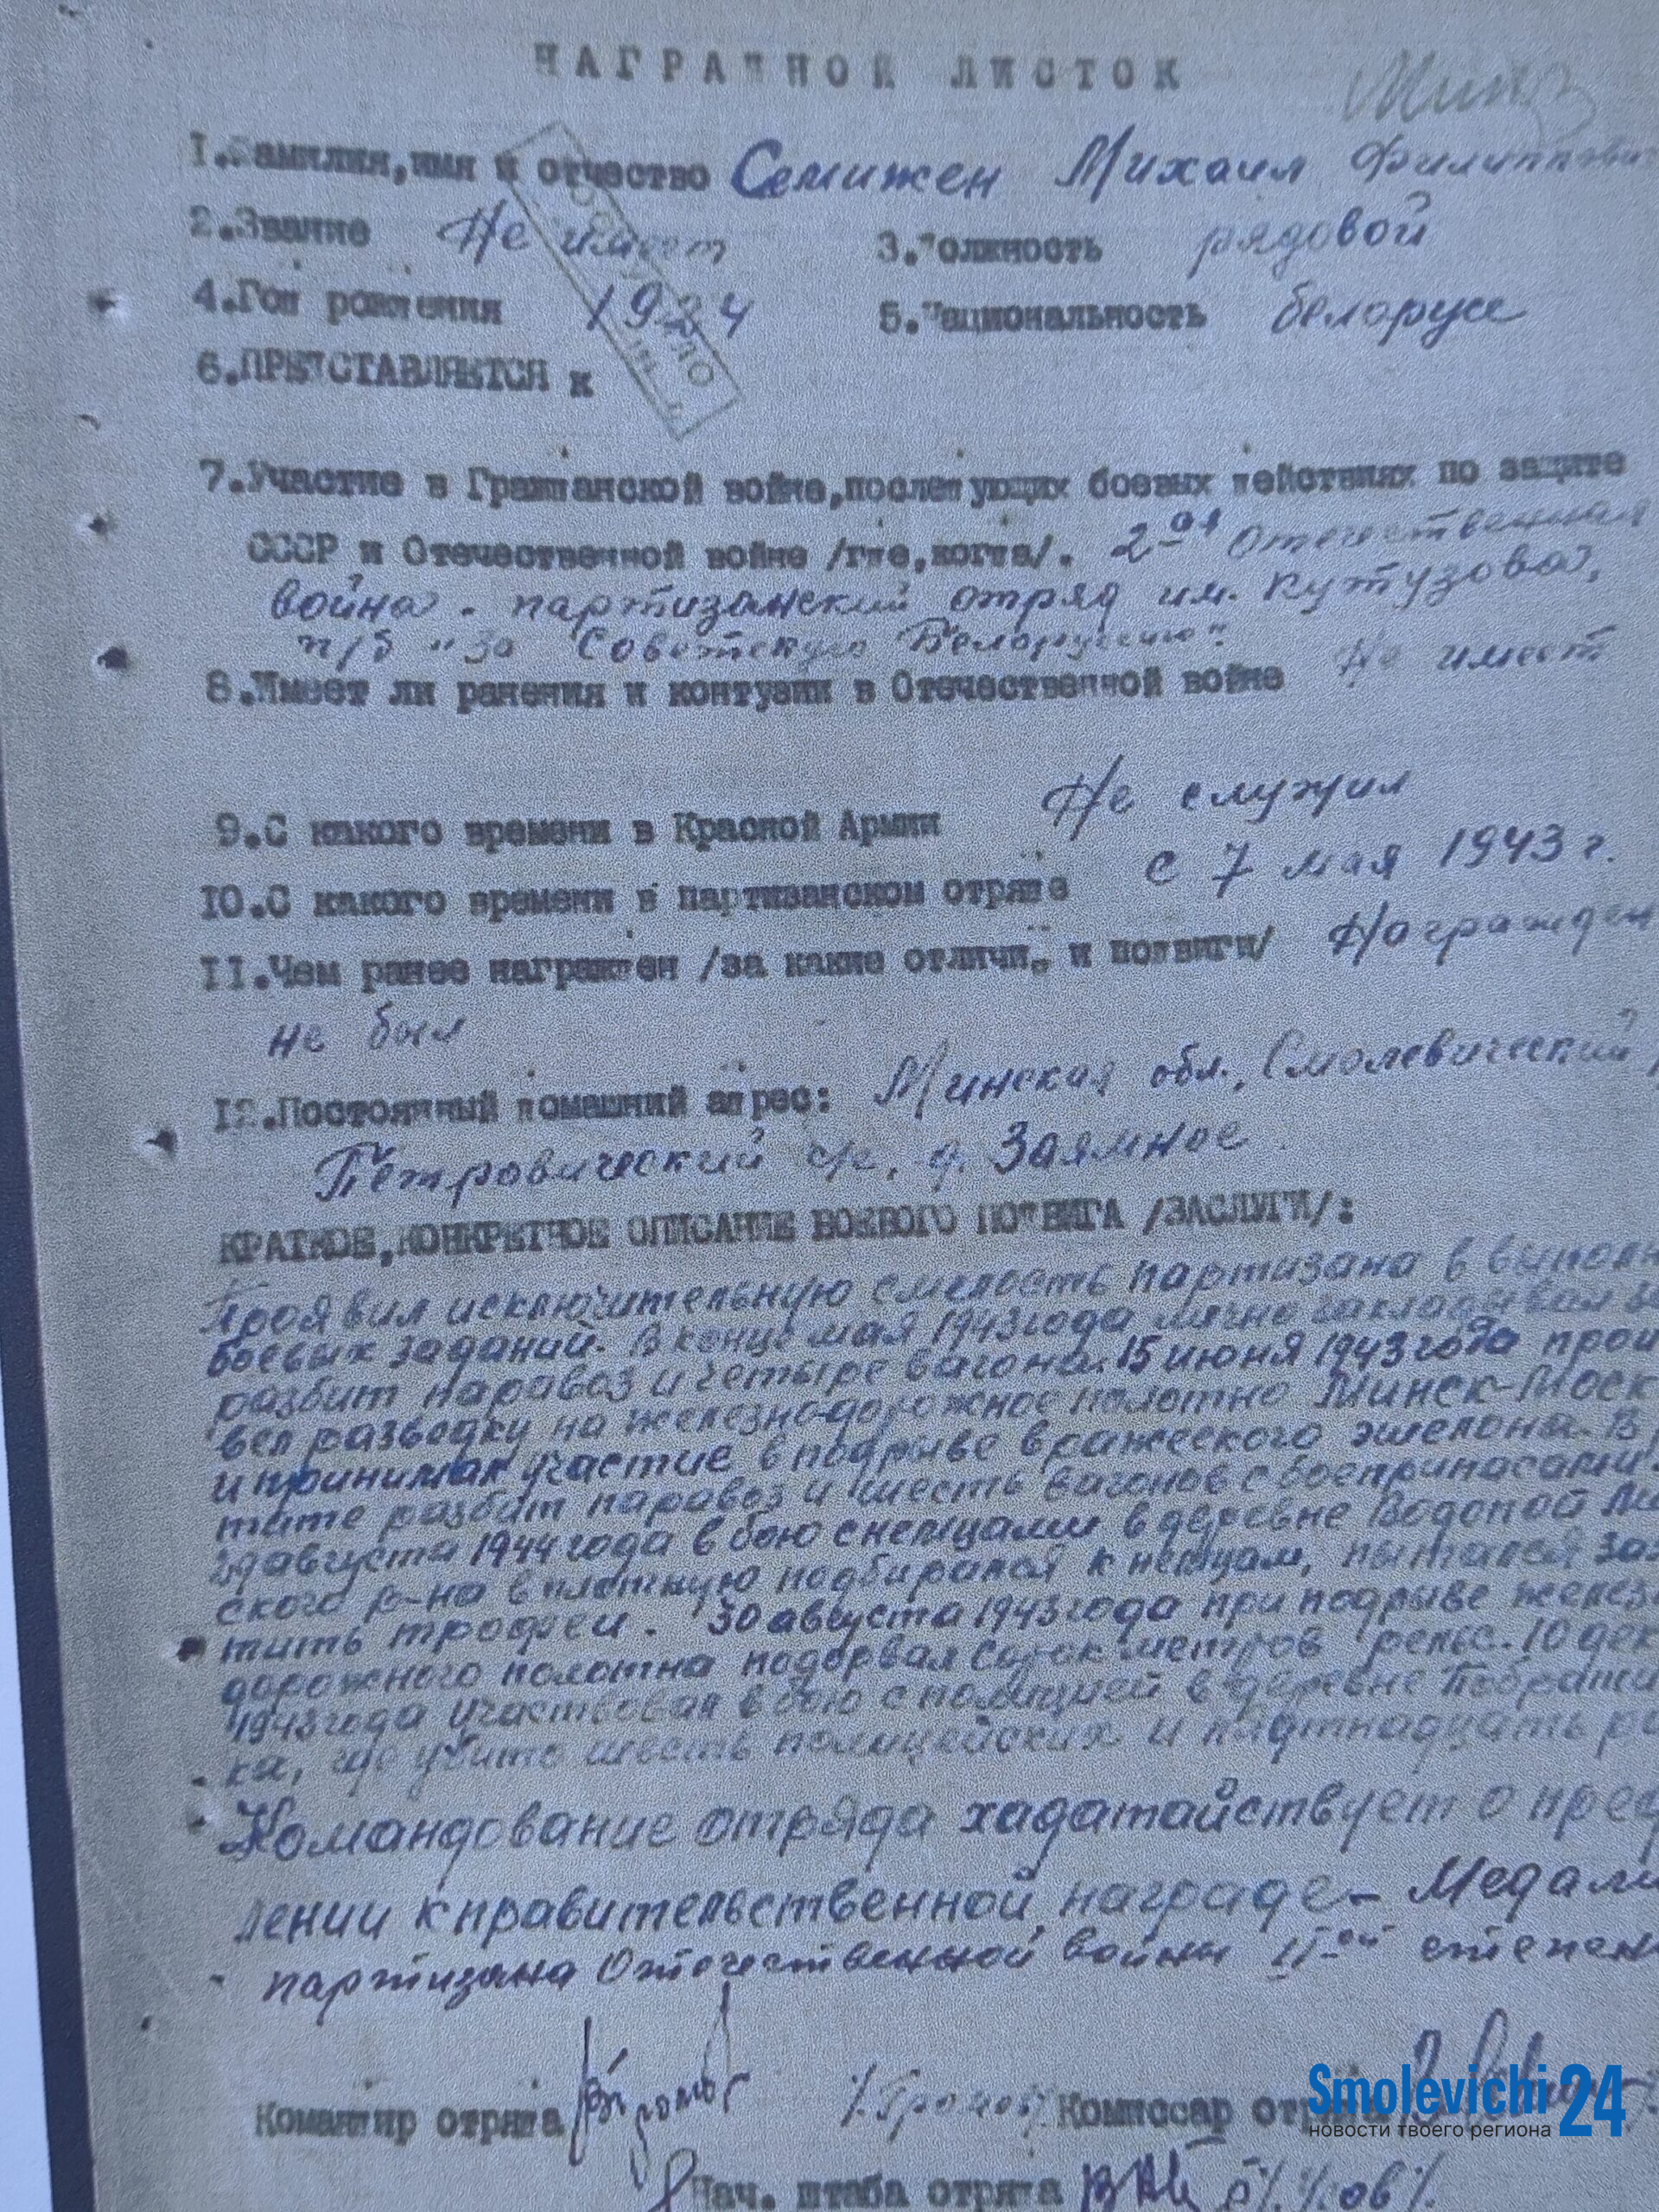 НАГРАДНОЙ ЛИСТОК
1.Фамилия,имя и отчество Семижен Михаил Филиппович
2.Звание Не имеет 3.Должность рядовой
4.Год рождения 1924 5.Национальность белорусс
6.ПРЕДСТАВЛЯЕТСЯ к
7.Участие в Гражданской войне,последующих боевых действиях по защите
СССР и Отечественной войне /где,когда/. 2-ая Отечественная
война. партизанский отряд им. Кутузова,
п/б "За Советскую Белоруссию".
8.Имеет ли ранения и контузии в Отечественной войне Не имеет
9.С какого времени в Красной Армии Не служил
10.С какого времени в партизанском отряде с 7 мая 1943 г.
11.Чем ранее награжден /за какие отличия и подвиги/ Награжден
не был
12.Постоянный домашний адрес: Минская обл., Смолевический
Петровический с/с, д. Заямное
КРАТКОЕ,КОНКРЕТНОЕ ОПИСАНИЕ БОЕВОГО ПОДВИГА /ЗАСЛУГИ/:
Проявил исключительную смелость партизана в выполн
боевых заданий. В конце мая 1943 года лично закладывал
разбит паравоз и четыре вагона. 15 июня 1943 года прои
вел разведку на железно-дорожное полотно Минск-Моск
и принимал участие в подрыве вражеского эшелона. В
тате разбит паравоз и шесть вагонов с боеприпасами.
августа 1944 года в бою с немцами в деревне Водопой
ского р-на вплотную подбирался к немцам, пытался зах
тить трофеи. 30 августа 1943 года при подрыве желез
дорожного полотна подорвал сорок метров рельс. 10 дек
1943 года участвовал в бою с полицией в деревне Побрати
ка, где убито шесть полицейских и пятнадцать ра
Командование отряда хадатайствует о пред
лении к правительственной награде - Медали
партизана Отечественной войны II-ой степен
Командир отряда /Громов/ Комиссар отряда
Нач. штаба отряда
Smolevichi 24
новости твоего региона